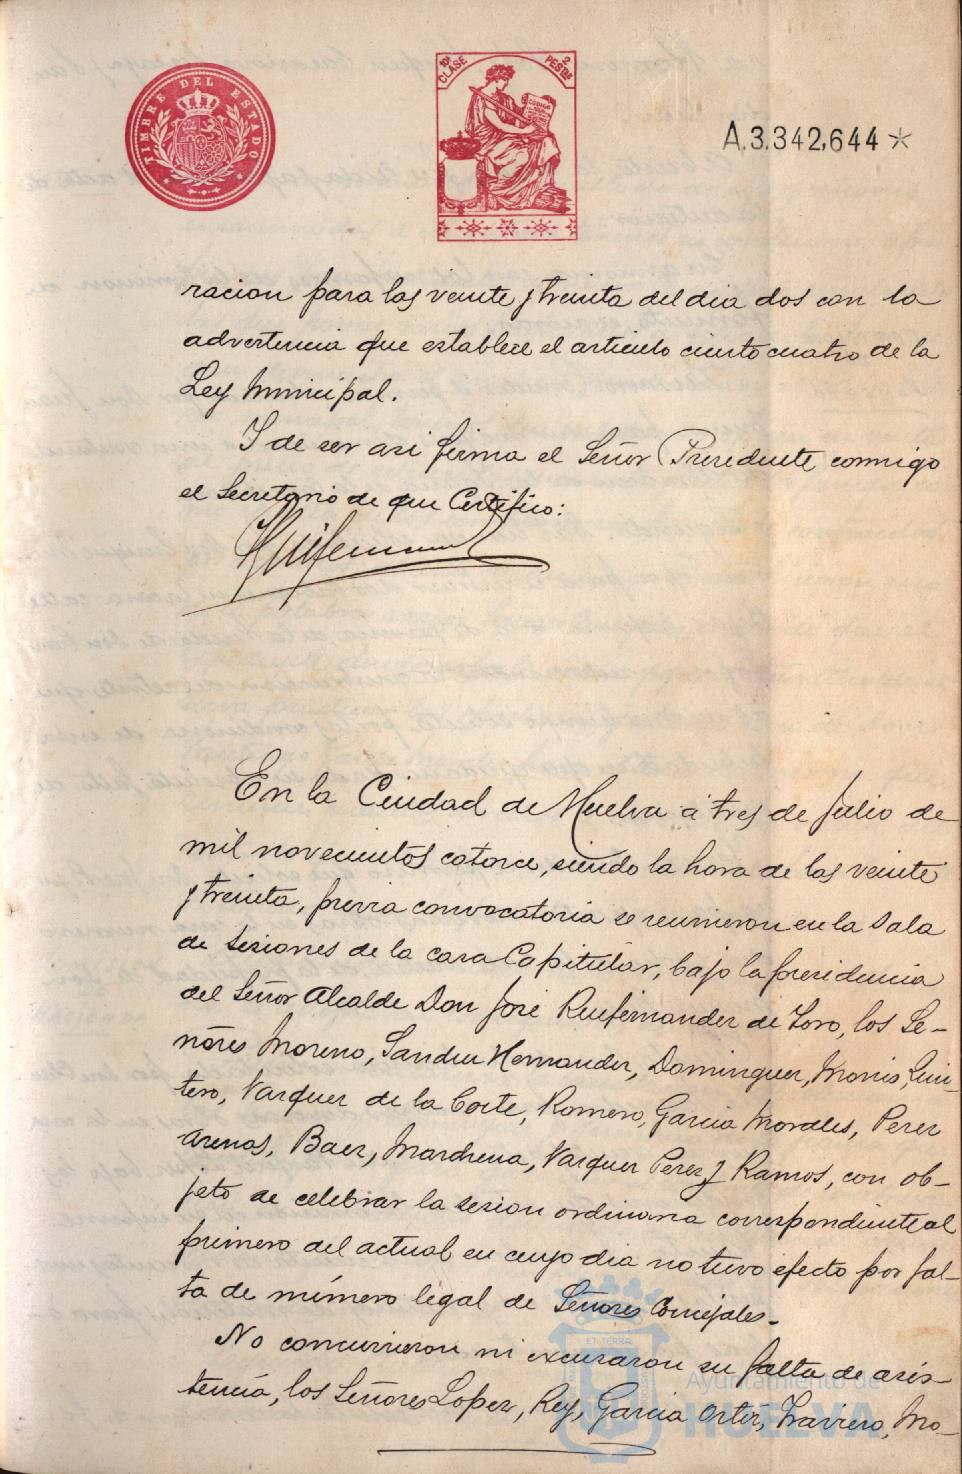 TIMBRE DEL ESTADO
10ª CLASE
2 PESTAS
CODIGO
A.3.342,644*
racion para las veinte y treinta del dia dos con la
advertencia que establece el articulo ciento cuatro de la
Ley Municipal.
Y de ser asi firma el Señor Presidente conmigo
el Secretario de que Certifico:
En la Ciudad de Huelva á tres de Julio de
mil novecientos catorce, siendo la hora de las veinte
y treinta, previa convocatoria se reunieron en la Sala
de Sesiones de la casa Capitular, bajo la presidencia
del Señor Alcalde Don José Ruifernandez de Toro, los Se-
ñores Moreno, Sanchez Hernandez, Dominguez, Monis, Quin-
tero, Vazquez de la Corte, Romero, Garcia Morales, Perez
Arenas, Baez, Marchena, Vazquez Perez y Ramos, con ob-
jeto de celebrar la sesion ordinaria correspondiente al
primero del actual en cuyo dia no tuvo efecto por fal-
ta de número legal de Señores Concejales.
No concurrieron ni excusaron su falta de asis-
tencia, los Señores Lopez, Rey, Garcia Ortiz, Traviero, Mo-
Ayuntamiento de
HUELVA